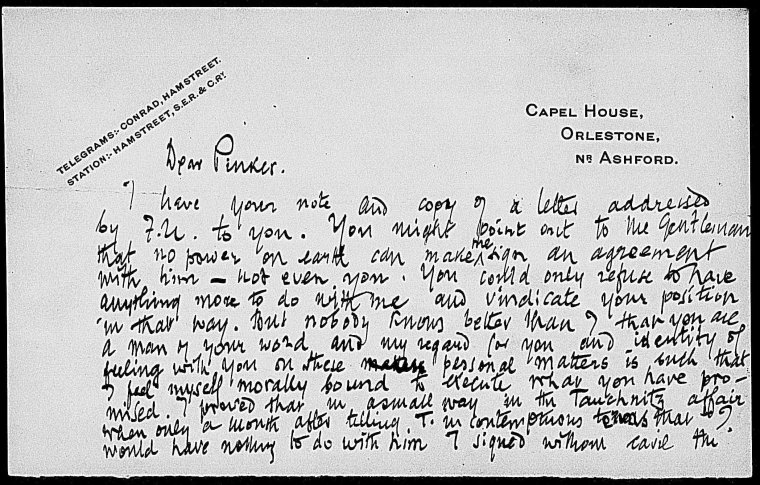 TELEGRAMS:- CONRAD, HAMSTREET.
STATION:- HAMSTREET, S.E.R. & C.RY.
CAPEL HOUSE,
ORLESTONE,
NR ASHFORD.
Dear Pinker.
I have your note and copy of a letter addressed
by F.U. to you. You might point out to the Gentleman
that no power on earth can make me sign an agreement
with him – not even you. You could only refuse to have
anything more to do with me and vindicate your position
in that way. But nobody knows better than I that you are
a man of your word and my regard for you and identity of
feeling with you on these personal matters is such that
I feel myself morally bound to execute what you have pro-
mised. I proved that in a small way in the Tauchnitz affair
when only a month after telling T. in contemptuous terms that I
would have nothing to do with him I signed without cavil the